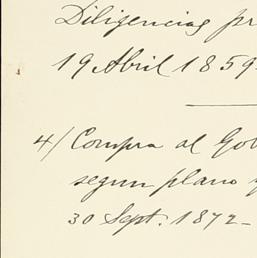 Diligencias pr
19 Abril 1859-
4/ Compra al Gob
segun plano y
30 Sept. 1872-